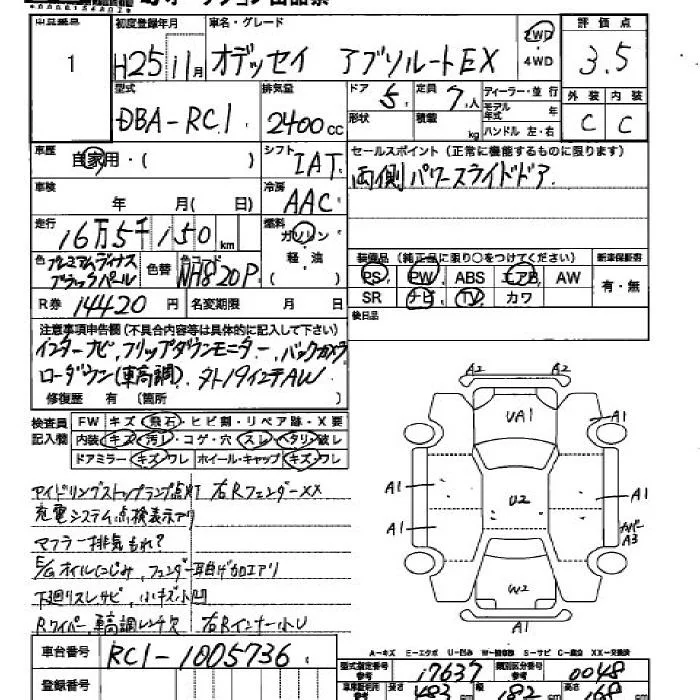 出品番号 初度登録年月 車名・グレード 2WD 評価点
1 H25 11月 オデッセイ アブソルートEX 4WD 3.5
型式 排気量 ドア 5 定員 7人 ディーラー・並行 外装 内装
DBA-RC1 2400cc 形状 積載 kg モデル年式 年 C C
ハンドル 左・右
車歴 シフト セールスポイント(正常に機能するものに限ります)
自家用・( ) IAT 両側パワースライドドア
車検 冷房
年 月( 日) AAC
走行 燃料
16万5千150km ガソリン
軽・油
色 プレミアムディープモカ
色替 色コード NH820P
装備品(純正品に限り○をつけてください) 新車保証書
PS PW ABS エアB AW 有・無
R券 14420円 名変期限 月 日 SR ナビ TV カワ
注意事項申告欄(不具合内容等は具体的に記入して下さい) 後日品
インターナビ.フリップダウンモニター.バックカメラ
ローダウン(車高調).外19インチAW
修復歴 有 (箇所 )
検査員記入欄
FW キズ・飛石・ヒビ割・リペア跡・X要
内装 キズ・汚レ・コゲ・穴・スレ・ヘタリ・破レ
ドアミラー キズ・ワレ ホイール・キャップ キズ・ワレ
アイドリングストップランプ点灯 右RフェンダーXX
充電システム点検表示アリ
マフラー排気もれ?
E/Gオイルにじみ.フェンダー耳曲げ加工アリ
下廻りスレサビ.小キズ小凹
Rワイパー.車高調レンチ欠 右Rインナー小U
A2 A2
UA1 A1
A1 U2 A1
A1 カバーA3
W2
A1
A-キズ E-エクボ U-凹み W-補修跡 S-サビ C-腐食 XX-交換済
車台番号 RC1-1005736
型式指定番号 参考 17637 類別区分番号 参考 0048
登録番号 長さ 483 cm 幅 182 cm 高さ 168 cm